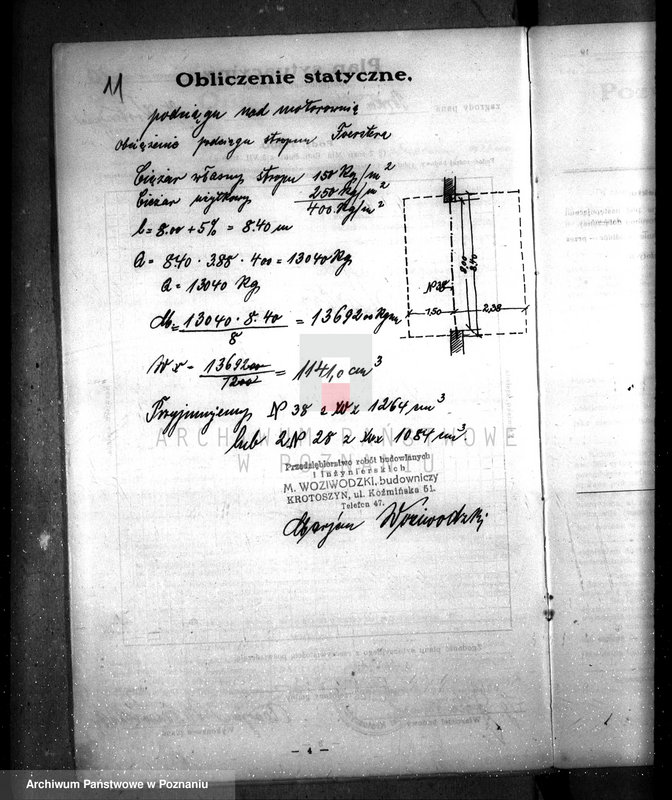 11
Obliczenie statyczne.
podciągu nad motorownią
Obciążenie podciągu stropem Foerstera
Ciężar własny stropu 150 Kg/m²
Ciężar użytkowy 250 Kg/m²
400 Kg/m²
l = 8.00 + 5% = 8.40 m
Q = 840 · 388 · 400 = 13040 Kg
Q = 13040 Kg
M = 13040 · 8.40 / 8 = 13692 00 Kgcm
Wx = 13692 00 / 1200 = 1141,0 cm³
Przyjmujemy N 38 z Wx 1264 cm³
lub 2 N 28 z Wx 1084 cm³.
8,00
8,40
N 38
1,50
2,38
Przedsiębiorstwo robót budowlanych
i inżynierskich
M. WOZIWODZKI, budowniczy
KROTOSZYN, ul. Koźmińska 51.
Telefon 47.
Marjan Woziwodzki
ARCHIWUM PAŃSTWOWE
W POZNANIU
- 4 -
Archiwum Państwowe w Poznaniu